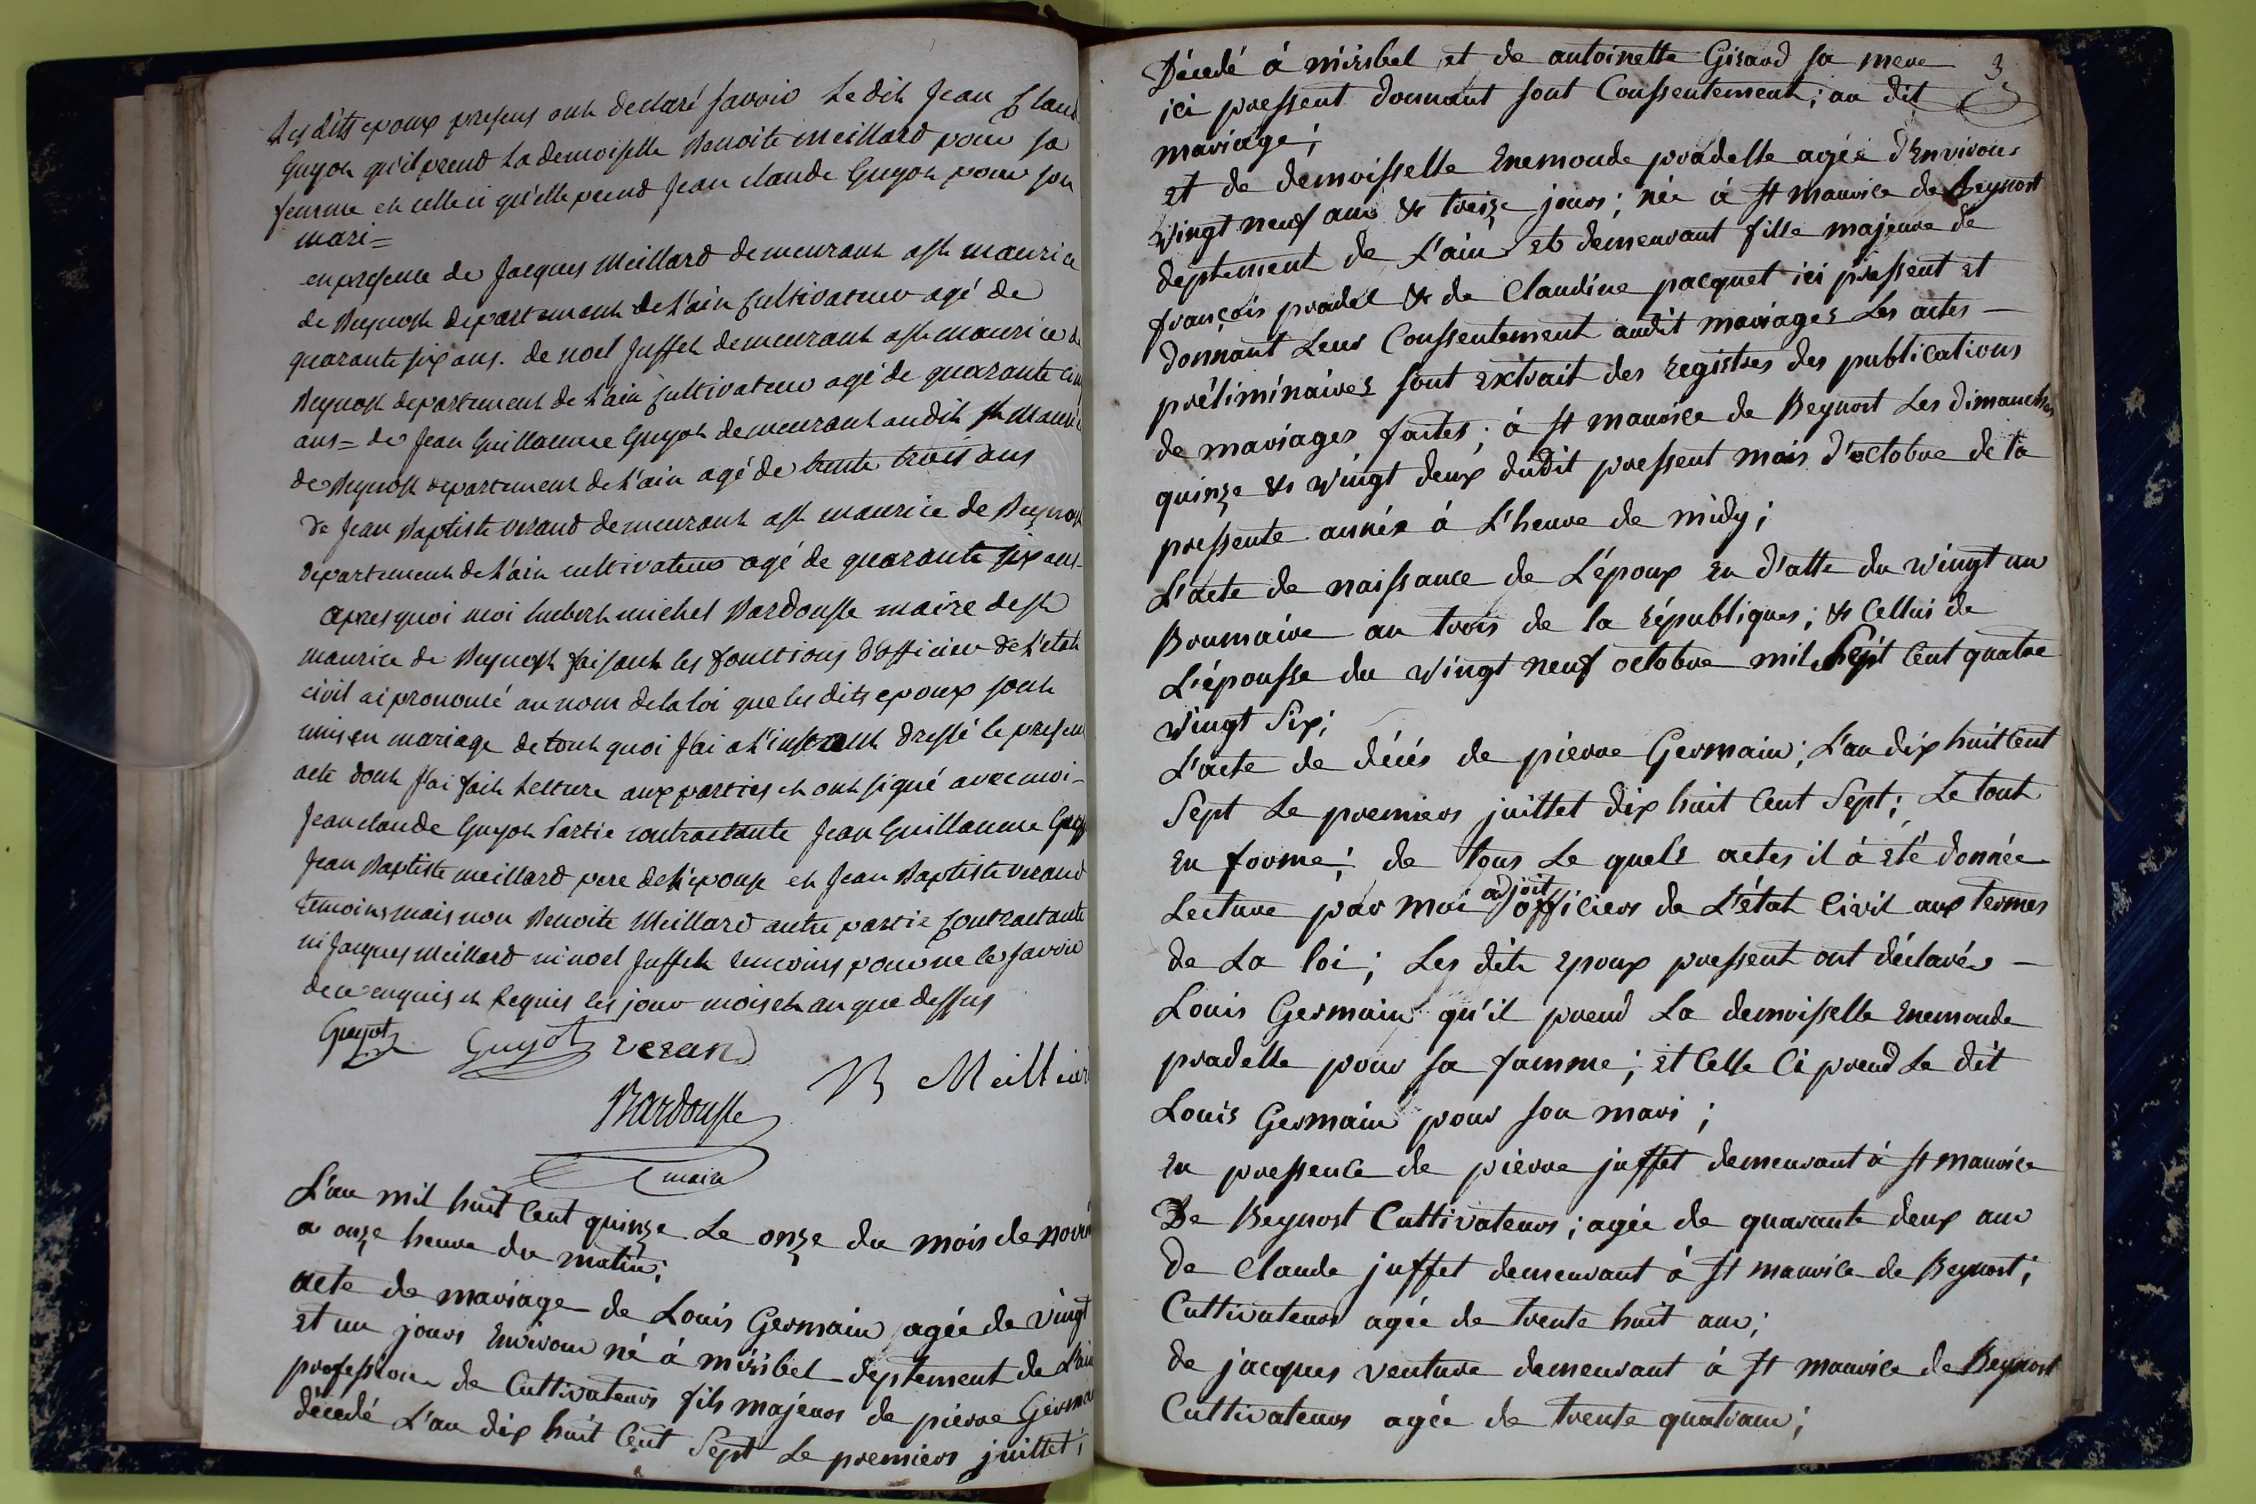 Les dits epoux presens ont declaré savoir Le dit Jean Claud
Guyot qu'il prend La demoiselle Benoite Meillard pour sa
femme et celle ci qu'elle prend Jean claude Guyot pour son
mari=
en presence de Jacques Meillard demeurant a St maurice
de Beynost departement de L'ain Cultivateur agé de
quarante six ans. de noel Juffet demeurant a St maurice de
Beynost departement de L'ain Cultivateur agé de quarante cinq
ans= de Jean Guillaume Guyot demeurant au dit St Mauri
de Beynost departement de L'ain agé de trente trois ans
de Jean Baptiste verand demeurant a St maurice de Beynost
departement de L'ain cultivateur agé de quarante six ans-
apres quoi moi hubert michel Bardousse maire de St
maurice de Beynost faisant les fonctions d'officier de L'etat
civil ai prononcé au nom de la loi que les dits epoux sont
unis en mariage de tout quoi J'ai a L'instant dressé le presen
acte dont J'ai fait Lecture aux parties et ont signé avec moi-
Jean claude Guyot Partie contractante Jean Guillaume Guy
Jean Baptiste meillard pere de L'epouse et Jean Baptiste verand
temoins mais non Benoite Meillard autre partie Contractante
ni Jacques Meillard ni noel Juffet temoins pour ne le savoir
de ce enquis et Requis les jour mois et an que dessus
Guyot Guyot veran
B Meillard
Bardousse
maire
L'an mil huit Cent quinze Le onze du mois de novem
a onze heure du matin;
acte de mariage de Louis Germain agée de vingt
et un jours Environ né à miribel deptement de L'ain
profession de Cultivateur fils majeur de pierre Germa
décedé L'an dix huit Cent Sept Le premiers juillet;
3
Décedé à miribel et de antoinette Girard sa mere
ici pressent donnant sont Conssentement; au dit
mariage;
et de demoisselle Enemonde pradelle agée d'Environs
vingt neuf ans & treize jours; née à St maurice de Beynost
deptement de L'ain et demeurant fille majeure de
françois pradel & de Claudine pacquet ici pressent et
donnant Leur Conssentement audit mariages Les actes -
préliminaires sont extrait des registres des publications
de mariages faites; à St maurice de Beynost Les dimanches
quinze & vingt deux dudit pressent mois d'octobre de la
pressente année à L'heure de midy;
L'acte de naissance de L'époux en d'atte du vingt un
Brumaire an trois de la républiques; & Cellui de
L'épousse du vingt neuf octobre mil Sept Cent quatre
vingt Six;
L'acte de décés de pierre Germain; L'an dix huit Cent
Sept Le premiers juillet dix huit Cent Sept; Le tout
en forme; de tous Le quels actes il à été donnée
Lecture par moi adjoit officiers de L'état Civil aux termes
de La loi; Les dits epoux pressent ont déclarés -
Louis Germain qu'il prend La demoisselle Enemonde
pradelle pour sa famme; et Celle Ci prend Le dit
Louis Germain pour son mari;
en pressence de pierre juffet demeurant à St maurice
De Beynost Cultivateurs; agée de quarante deux ans
de Claude juffet demeurant à St maurice de Beynost;
Cultivateurs agée de trente huit ans;
de jacques venture demeurant à St maurice de Beynost
Cultivateurs agée de trente quatrans;